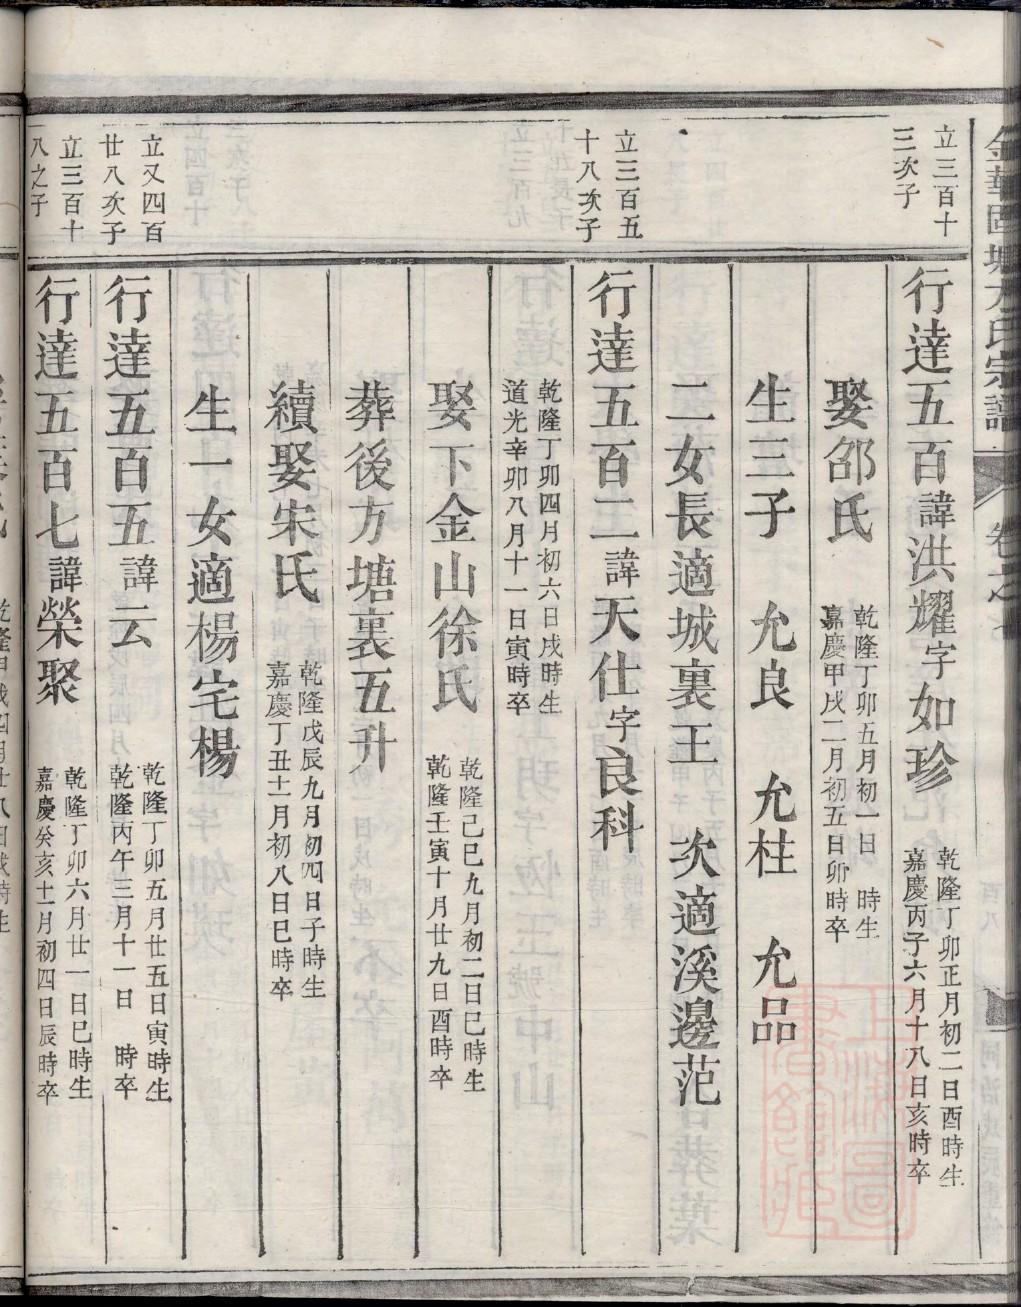 立三百十
三次子
行達五百諱洪耀字如珍
乾隆丁卯正月初二日酉時生
嘉慶丙子六月十八日亥時卒
娶邵氏
乾隆丁卯五月初一日　時生
嘉慶甲戌二月初五日卯時卒
生三子　允良　允柱　允品
二女長適城裏王　次適溪邊范
立三百五
十八次子
行達五百二諱天仕字良科
乾隆丁卯四月初六日戌時生
道光辛卯八月十一日寅時卒
娶下金山徐氏
乾隆己巳九月初二日巳時生
乾隆壬寅十月廿九日酉時卒
葬後方塘裏五升
續娶宋氏
乾隆戊辰九月初四日子時生
嘉慶丁丑十一月初八日巳時卒
生一女適楊宅楊
立又四百
廿八次子
行達五百五諱云
乾隆丁卯五月廿五日寅時生
乾隆丙午三月十一日　時卒
立三百十
八之子
行達五百七諱榮聚
乾隆丁卯六月廿一日巳時生
嘉慶癸亥十一月初四日辰時卒